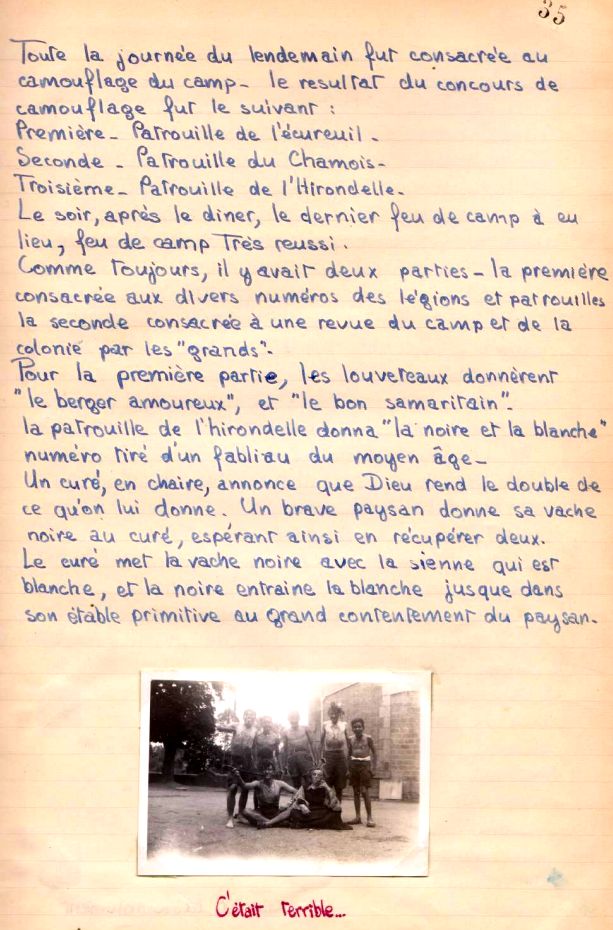 35
Toute la journée du lendemain fut consacrée au
camouflage du camp- le resultat du concours de
camouflage fut le suivant :
Première- Patrouille de l'écureuil.
Seconde - Patrouille du Chamois-
Troisième- Patrouille de l'Hirondelle.
Le soir, après le diner, le dernier feu de camp à eu
lieu, feu de camp Très reussi.
Comme Toujours, il y avait deux parties- la première
consacrée aux divers numéros des légions et patrouilles
la seconde consacrée à une revue du camp et de la
colonie par les "grands".
Pour la première partie, les louveteaux donnèrent
"le berger amoureux", et "le bon samaritain".
la patrouille de l'hirondelle donna "la noire et la blanche"
numéro tiré d'un fabliau du moyen âge-
Un curé, en chaire, annonce que Dieu rend le double de
ce qu'on lui donne. Un brave paysan donne sa vache
noire au curé, espérant ainsi en récupérer deux.
Le curé met la vache noire avec la sienne qui est
blanche, et la noire entraine la blanche jusque dans
son étable primitive au grand contentement du paysan.
C'était terrible...